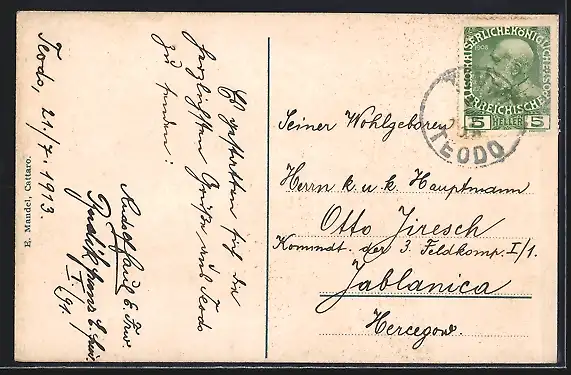 Teodo, 21/7. 1913.
Es gestatten sich die
herzlichsten Grüße aus Teodo
zu senden:
Rudolf
E. Mandel, Cattaro.
KAISERLICHE KÖNIGLICHE
1908
ÖSTERREICHISCHE
5 HELLER 5
TEODO
Seiner Wohlgeboren
Herrn k. u. k. Hauptmann
Otto Jiresch
Kommdt. der 3. Feldkomp. I/1.
Jablanica
Hercegow.